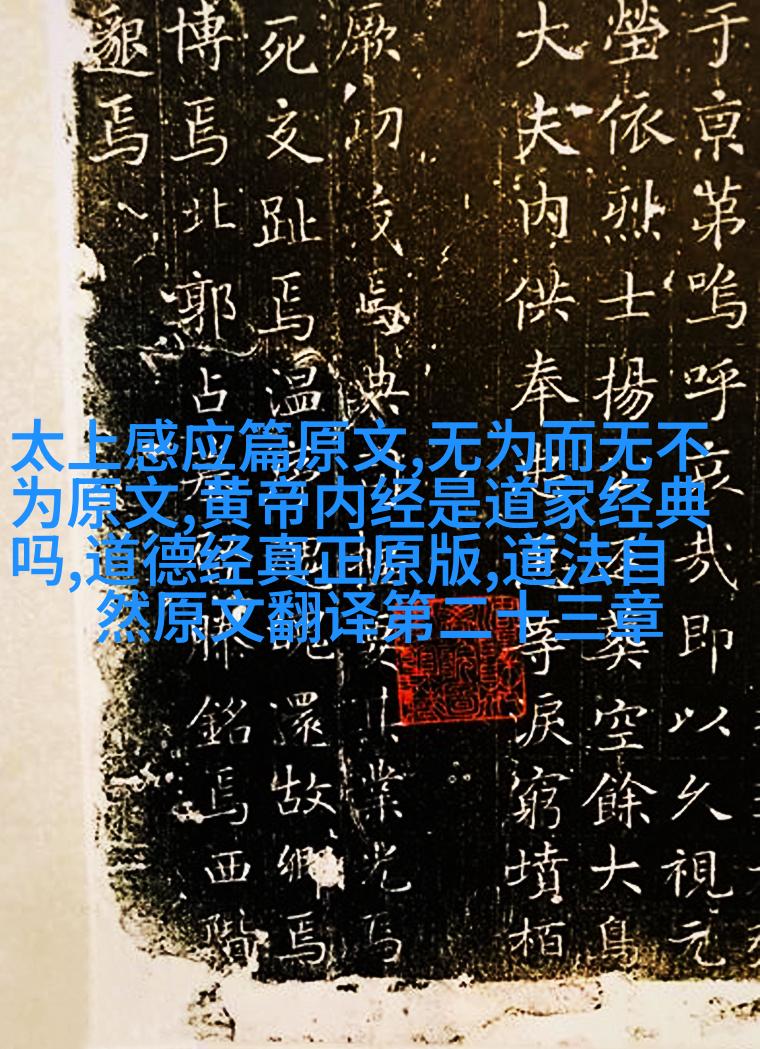 于京第嗚呼哀哉即以久視元
塋依烈士揚不空餘大鳥
大夫内供奉等淚窮墳栢
厥功焉典業光焉
死交趾焉温還故鄉焉
博焉北郭占銘焉西階
邈焉
太上感应篇原文,无为而无不
为原文,黄帝内经是道家经典
吗,道德经真正原版,道法自
然原文翻译第二十三章